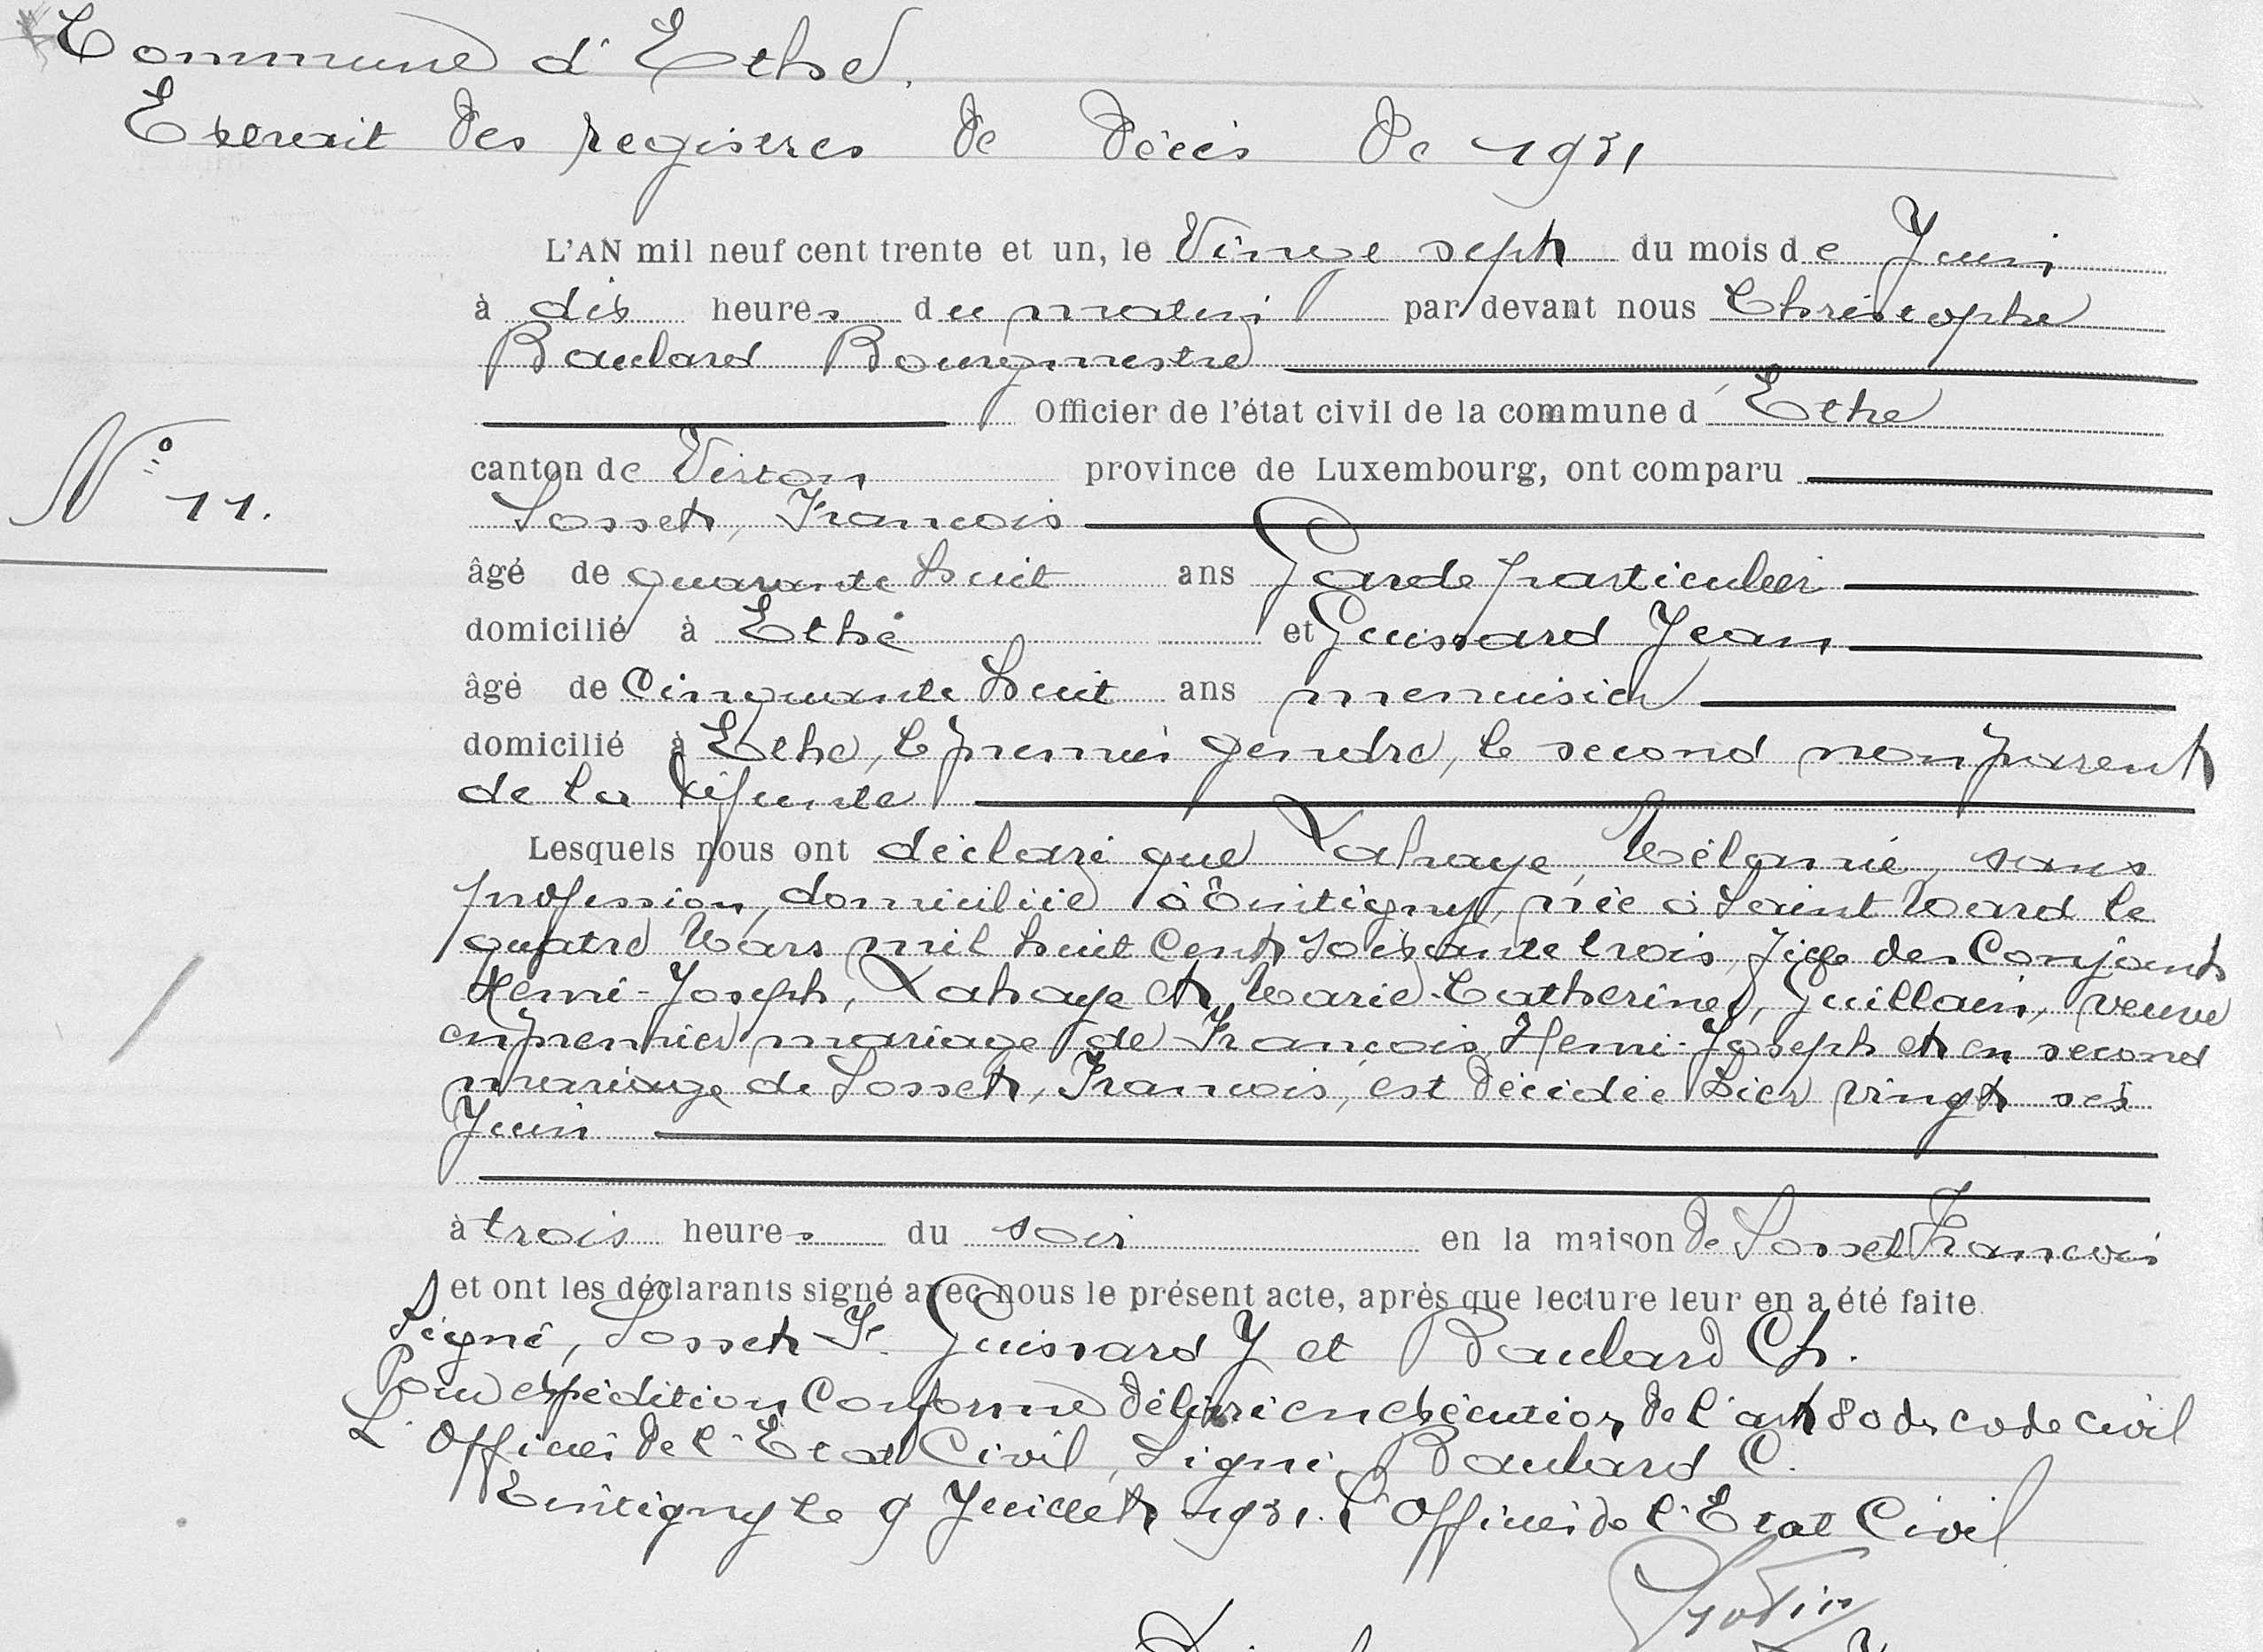 Commune d'Ethe.
Extrait des registres de décès de 1931
L'AN mil neuf cent trente et un, le Vingt sept du mois de Juin
à dix heures du matin par devant nous Christophe
Baulard Bourgmestre
Officier de l'état civil de la commune d'Ethe
canton de Virton province de Luxembourg, ont comparu
N° 11.
Sosset, François
âgé de quarante huit ans Garde particulier
domicilié à Ethe et Guissard Jean
âgé de Cinquante huit ans menuisier
domicilié à Ethe, le premier gendre, le second non parent
de la défunte
Lesquels nous ont déclaré que Lahaye, Mélanie, sans
profession, domiciliée à Tintigny, née à Saint Mard le
quatre Mars mil huit Cent soixante trois, fille des Conjoints
Henri-Joseph, Lahaye et Marie-Catherine, Guillain, veuve
en premier mariage de François, Henri-Joseph et en second
mariage de Sosset, François, est décédée hier vingt six
Juin
à trois heures du soir en la maison de Sosset François
et ont les déclarants signé avec nous le présent acte, après que lecture leur en a été faite
Signé, Sosset F. Guissard J et Baulard Ch.
Pour expédition Conforme délivré en exécution de l'art 80 du code civil
L'Officier de l'Etat Civil, Signé, Baulard C.
Tintigny le 9 Juillet 1931. L'Officier de l'Etat Civil